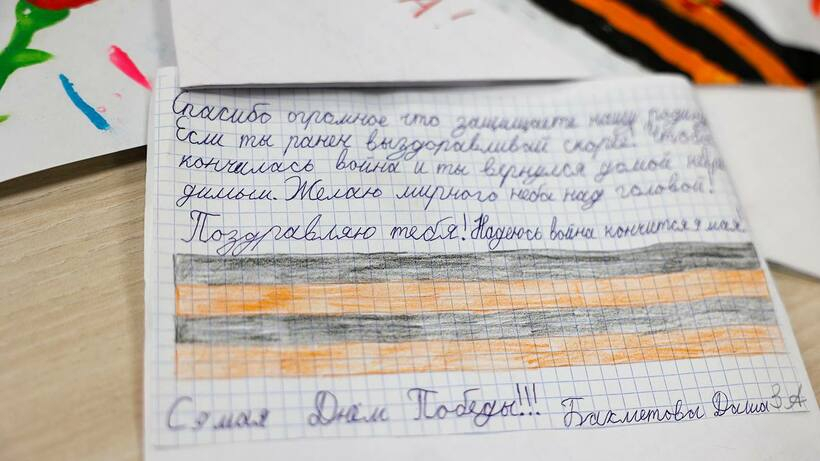 А!
Спасибо огромное что защищаете нашу родину
Если ты ранен выздоравливай скорее. Чтобы
кончилась война и ты вернулся домой невре
димым. Желаю мирного неба над головой!
Поздравляю тебя! Надеюсь война кончится 9 мая.
С 9 мая Днём Победы!!! Бахметова Даша 3 А